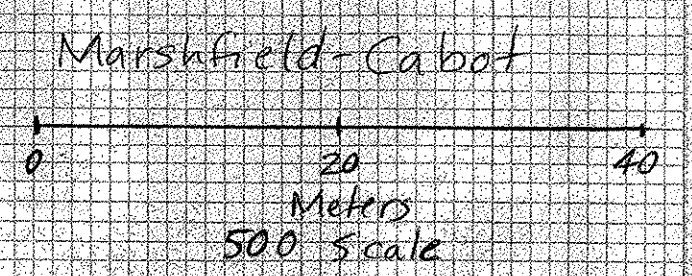 Marshfield-Cabot
0 20 40
Meters
500 Scale